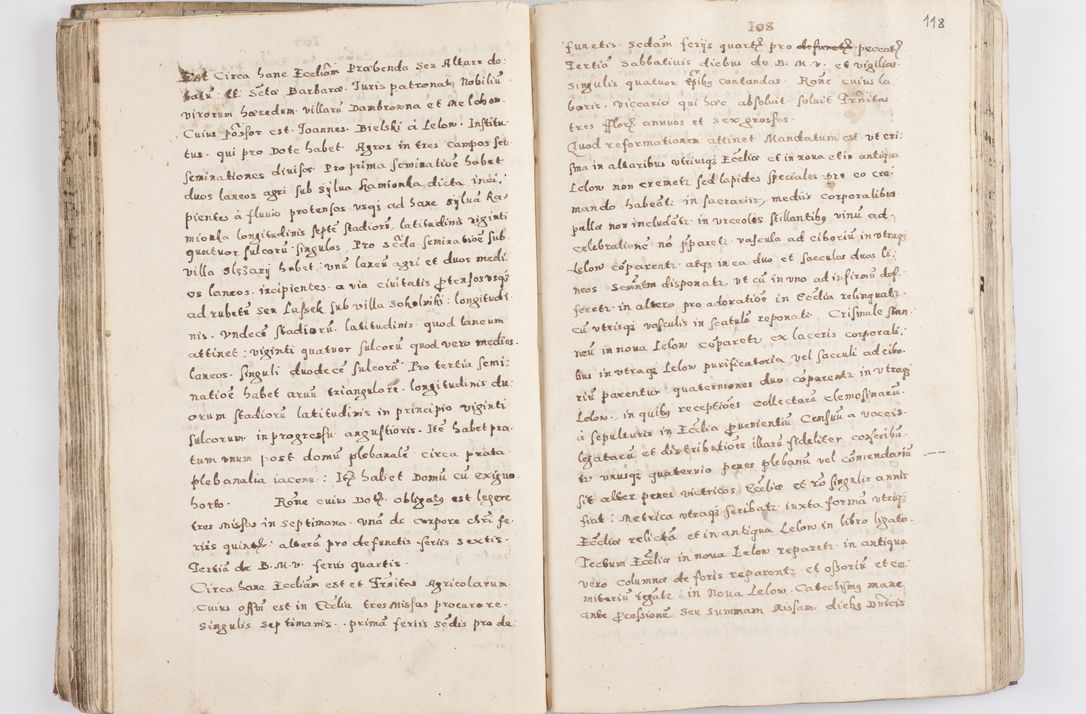 Est Circa hanc Eccliam Præbenda seu Altare do:
tatū: tt: Sctæ Barbaræ. Iuris patronatꝰ Nobiliū
virorum hæredum villarū Dambrowna et Melchow.
Cuius possor est Joannes Bielski à Lelow. Institu:
tus. qui pro Dote habet. Agros in tres campos seu
seminationes diuisos. Pro prima seminatiōe habet
duos laneos agri sub sylua Kamionka dicta inci:
pientes à fluuio protensos vsq; ad hanc syluā Ka:
mionka longitudinis septē stadiorū, latitudinis viginti
quatuor sulcorū singulos. Pro scda seminatiōe sub
villa Olszanÿ habet: vnū laneū agri et duos medi:
os laneos. incipientes a via ciuitatis ꝓtensos vsq;
ad rubetū seu Lassek sub villa Sokolniki: longitudi:
nis. vndecē stadiorū. latitudinis quod laneum
attinet: viginti quatuor sulcorū quod vero medios
laneos. singuli duodecē sulcorū. Pro tertia semi:
natiōe habet aruū triangulare. longitudinis du:
orum stadiorū latitudinis in principio viginti
sulcorum. in progressu angustioris. Itē habet pra:
tum vnum post domū plebanalē circa prata
plebanalia iacens: Itē habet Domū cū exiguo
horto. Rōne cuius Dotꝭ. obligatꝰ est legere
tres Missas in septimana. vnā de corpore chri fe:
rijs quintꝭ. alterā pro defunctis ferijs sextis.
Tertiā de B.M.V. ferijs quartis.
Circa hanc Eccliam est et Frnitas Agricolarum.
cuius offm est in Ecclia tres Missas procurare.
singulis septimanis. primā ferijs scdis pro de:

108
118
functis. scdam ferijs quartꝭ pro defunctꝭ peccatꝭ
Tertiā Sabbativis diebus de B.M.V. et vigilias
singulis quatuor tpibꝰ cantandas. Rōne cuius la:
boris. viccario qui hæc absoluit. soluit Frnitas
tres fflorꝭ annuos et sex grossos.
Quod reformationem attinet Mandatum est. vt cri:
sma in altaribus vtriusq; Eccliæ et in noua et in antiqua
Lelow non cremetꝛ sed lapides speciales pro eo cre:
mando habeātꝛ in sacrarijs, mediā corporalibus
palla non includātꝛ in vrceolis stillantibꝰ vinū ad
celebratione nō ꝓparetꝛ. vascula ad ciboriū in vtraq;
Lelow cōparentꝛ. atq; in ea duo et sacculos duos li:
neos. Semntem disponatꝛ. vt cū in vno ad infirmū def:
feretꝛ in altero pro adoratiōe in Ecclia relinquatꝛ.
cū vtrisq; vasculis in scatula reponatꝛ. Crismale stan:
neū in noua Lelow cōparetꝛ. ex laceris corporali:
bus in vtraq; Lelow purificatoria vel sacculi ad cibo:
riū parentur. quaterniones duo cōparentꝛ in vtraq;
Lelow. in quibꝰ receptiōes collectarū elemosinarū.
à sepulturis in Ecclia ꝓuenientiū Censuū a vaccis
legatarū et distributiōes illarū fideliter conscriba:
tꝛ vnusq; quaternio penes plebanū vel cōmendariū
sit alter penes victricos Eccliæ et rō singulis annis
fiat: Metrica vtraq; scribatꝛ iuxta formā vtriq;
Eccliæ relictā et in antiqua Lelow in libro ligato.
Tectum Eccliæ in noua Lelow reparetꝛ. in antiqua
vero columnæ de foris reparentꝛ et ossoriū et ce:
miteriū tegatꝛ in Noua Lelow. Catechismꝰ mane
ante ꝓcessionē seu summam Missam diebꝰ Dnicis